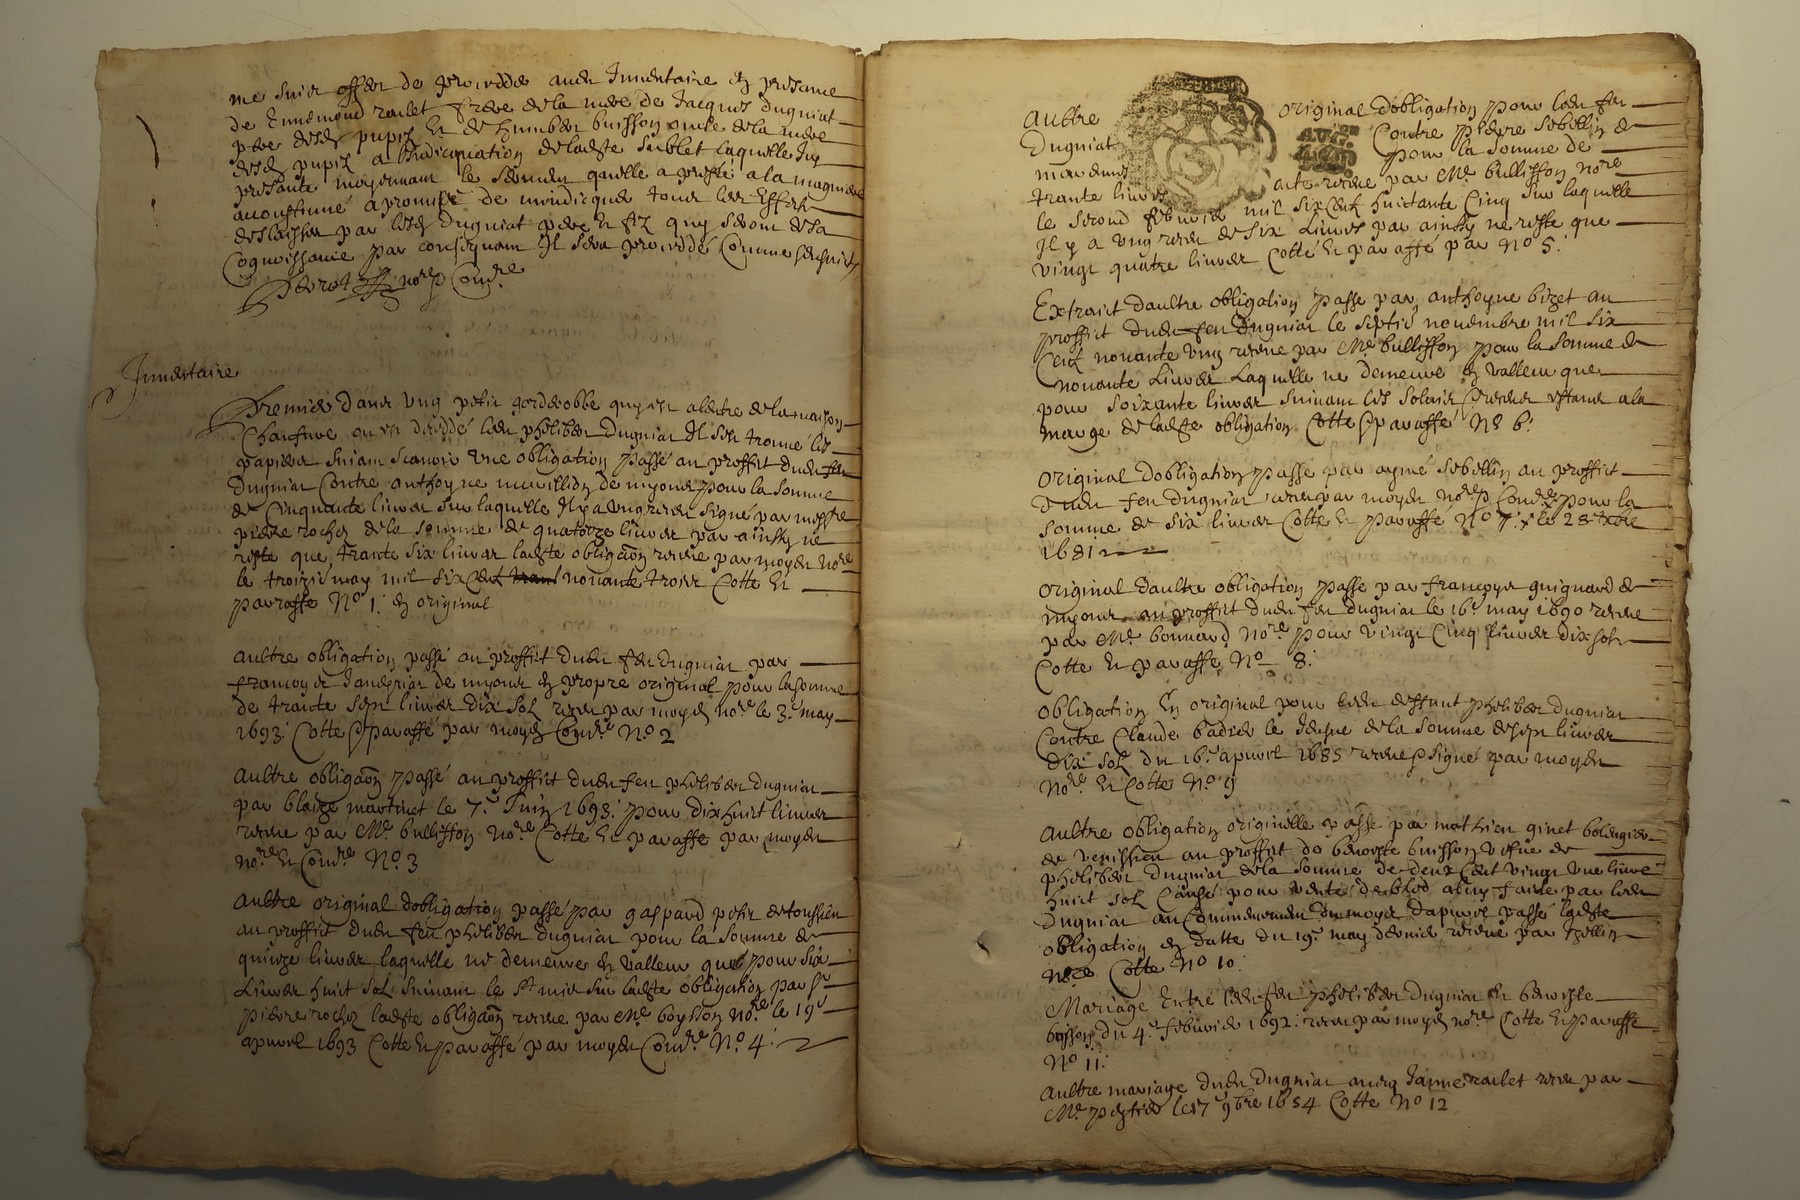 me suis offer de proceddé audit Inventaire en presance
de Ennemond raclet frere de la mere de Jacques Dugniat
pere desd pupilz Et de humber buisson oncle de la mere
desd pupilz a lindicquation de ladste sublet laquelle Icy
presante moyennant le serment quelle a presté a la maniere
accoustumé a promis de inrdicquer tous les Effets
deslaisses par lesd Dugniat pere et filz quy seront de sa
Cognoissance par consequam Il sera proceddé Comme sensuit
nore Comre
Inventaire
Premier dans ung petit garderobbe quy est a lentre de la maison
Chanfure ou est decedé led philiber Dugniat Il sest trouvé les
papiers suivam scavoir une obligation passé au proffict dud feu
Dugniat Contre anthoyne mavillion de myons pour la somme
de Cinquante livres sur laquelle Il y a ung recu signé par messre
pierre rochez de la somme de quatorze livres par ainsy ne
reste que trante six livres ladste obligaon recue par moyen nore
le troizie may mil six Cent nonante trois Cotte et
parraffe No 1. en original
aultre obligation passé au proffict dud feu Dugniat par
francoys Jandgrian de myons en propre original pour la somme
de trante sept livres dix sol recue par moyen nore le 3e may
1693. Cotte et paraffé par moyen Comre No 2
aultre obligaon passé au proffict dud feu philiber dugniat
par blaize martinet le 7e Juin 1693. pour dix huict livres
recue par Me bullisson nore Cotte et paraffe par moyen
nore et Comre No 3
aultre original dobligation passé par gaspard petit de toussieu
au proffict dud feu philiber dugniat pour la somme de
quinze livres laquelle ne demeure en valleur que pour six
Livres huict sol suivam le st mis sur ladste obligation par sr
pierre rochez ladste obligaon recue par Me boysson nore le 19e
apvril 1693 Cotte et paraffé par moyen Comre No 4.
aultre original dobligation pour led feu
Dugniat Contre pierre sebellin de
mardeins pour la somme de
trante livres acte recue par Me bullisson nore
le second febvrier mil six Cent huictante Cinq sur laquelle
Il y a ung recu de six Livres par ainsy ne reste que
vingt quatre livres Cotté et paraffé par No 5.
Extraict daultre obligation passe par anthoyne bizet au
proffict dud feu Dugniat le septie novembre mil six
Cent nonante ung recue par Me bullisson pour la somme de
nonante Livres Laquelle ne demeure en valleur que
pour soixante livres suivam les solvit Concedes estant a la
marge de ladste obligation Cotte et paraffé No 6.
original dobligation passe par aymé sebellin au proffict
dud feu Dugniat recue par moyen nore et Comre pour la
somme de six livres Cotte et paraffé No 7. le 28 xbre
1681
original daultre obligation passe par francoys guignard de
myons au proffict dud feu dugniat le 16e may 1690 recue
par Me bonnard nore pour vingt Cinq livres dix sols
Cotte et paraffe No 8.
obligation En original pour led deffunt philiber dugniat
Contre Claude badier le Jeusne de la somme de sept livres
Dix sol du 16e apvril 1685 recue et signé par moyen
Nore et Cotte No 9
aultre obligation originelle passe par mathieu ginet bolengier
de venissieu au proffict de benoiste buisson vefve de
philiber Dugniat de la somme de deux Cent vingt une livre
huict sol Causé pour vente de bled a luy faite par led
Dugniat au Commencement du moys dapvril passé ladste
obligation en datte du 19e may dernier recue par
nore Cotte No 10.
Mariage Entre led feu philiber dugniat et benoiste
buisson du 4e febvrier 1692. recu par moyen nore Cotte et paraffe
No 11.
aultre mariage dud Dugniat avecq Janne raclet recu par
Me le 17 9bre 1654 Cotte No 12